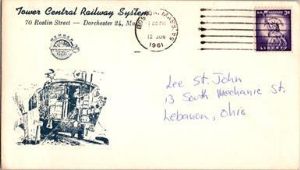 Tower Central Railway System
70 Roslin Street — Dorchester 24, Mass.
BOSTON, MASS.
12 JUN
1961
3¢
LIBERTY
Lee St. John
13 South Mechanic St.
Lebanon, Ohio